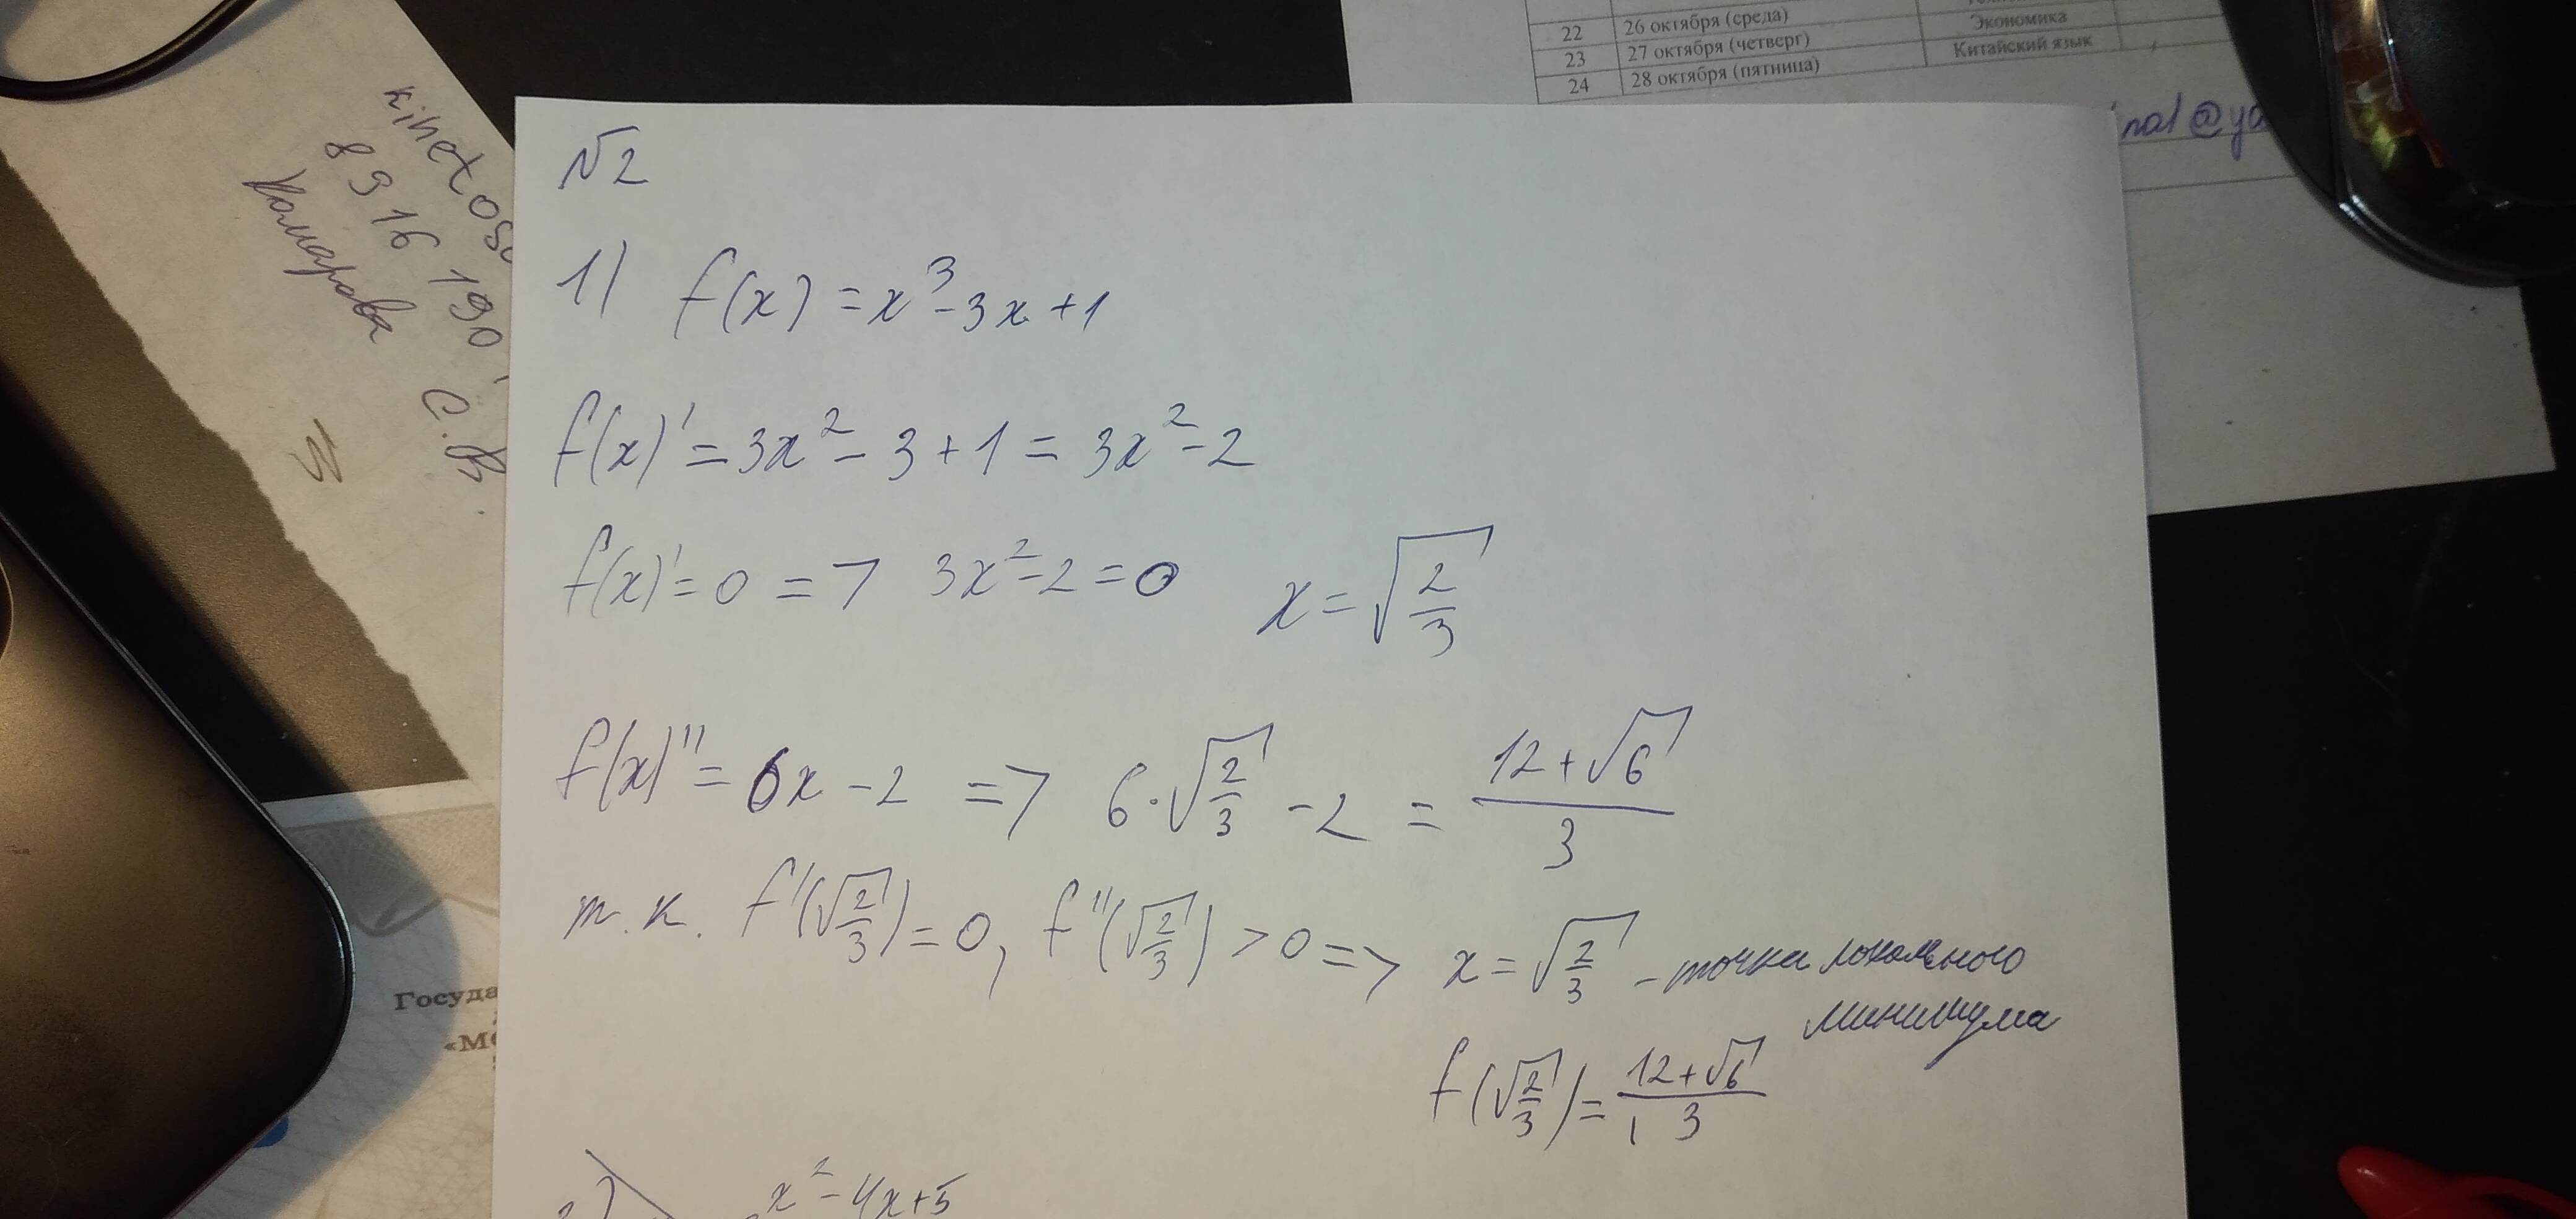 22 26 октября (среда) Экономика
23 27 октября (четверг) Китайский язык
24 28 октября (пятница)
nal@ya
kinetos
8916 190
Комарова С.В
№2
1) f(x) = x³-3x+1
f(x)' = 3x² - 3 + 1 = 3x² - 2
f(x)' = 0 => 3x² - 2 = 0 x = √(2/3)
f(x)'' = 6x - 2 => 6·√(2/3) - 2 = (12+√6)/3
т.к. f'(√(2/3)) = 0, f''(√(2/3)) > 0 => x = √(2/3) - точка локального
минимума
f(√(2/3)) = (12+√6)/3
x² - 4x + 5
Госуда
«МО